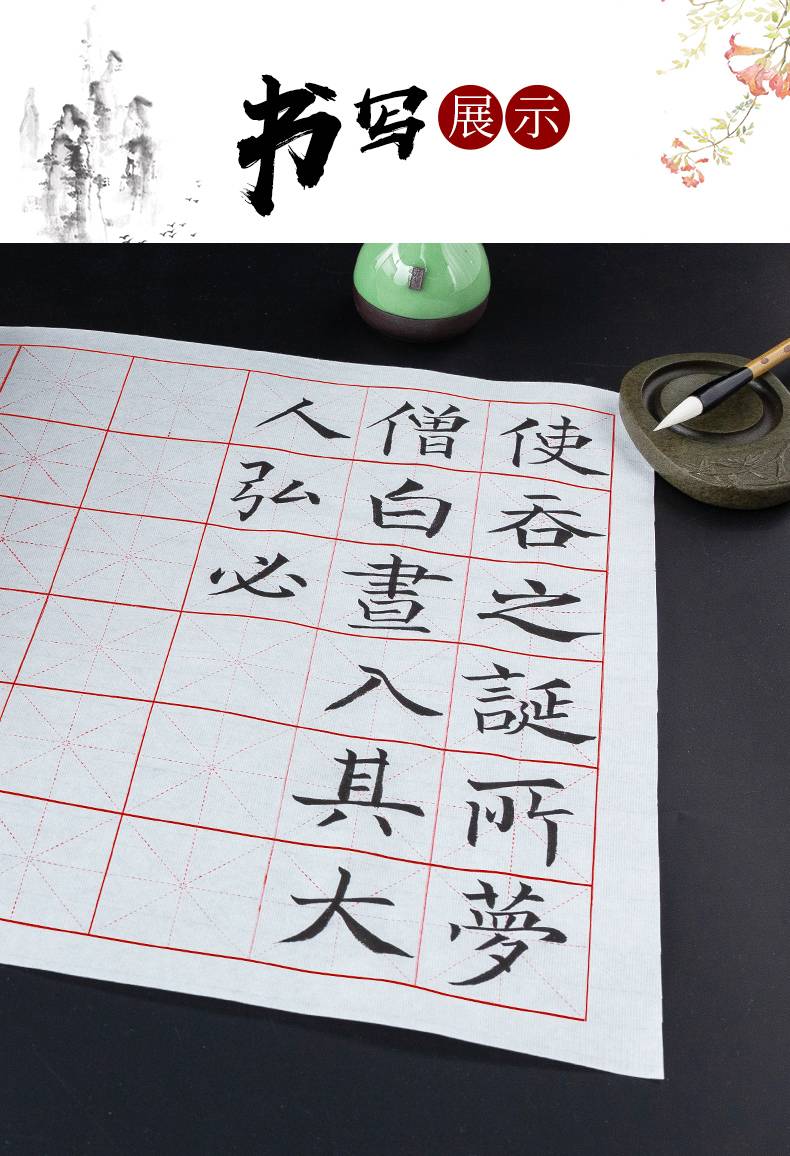 书写展示
使吞之誕所夢
僧白晝入其大
人弘必